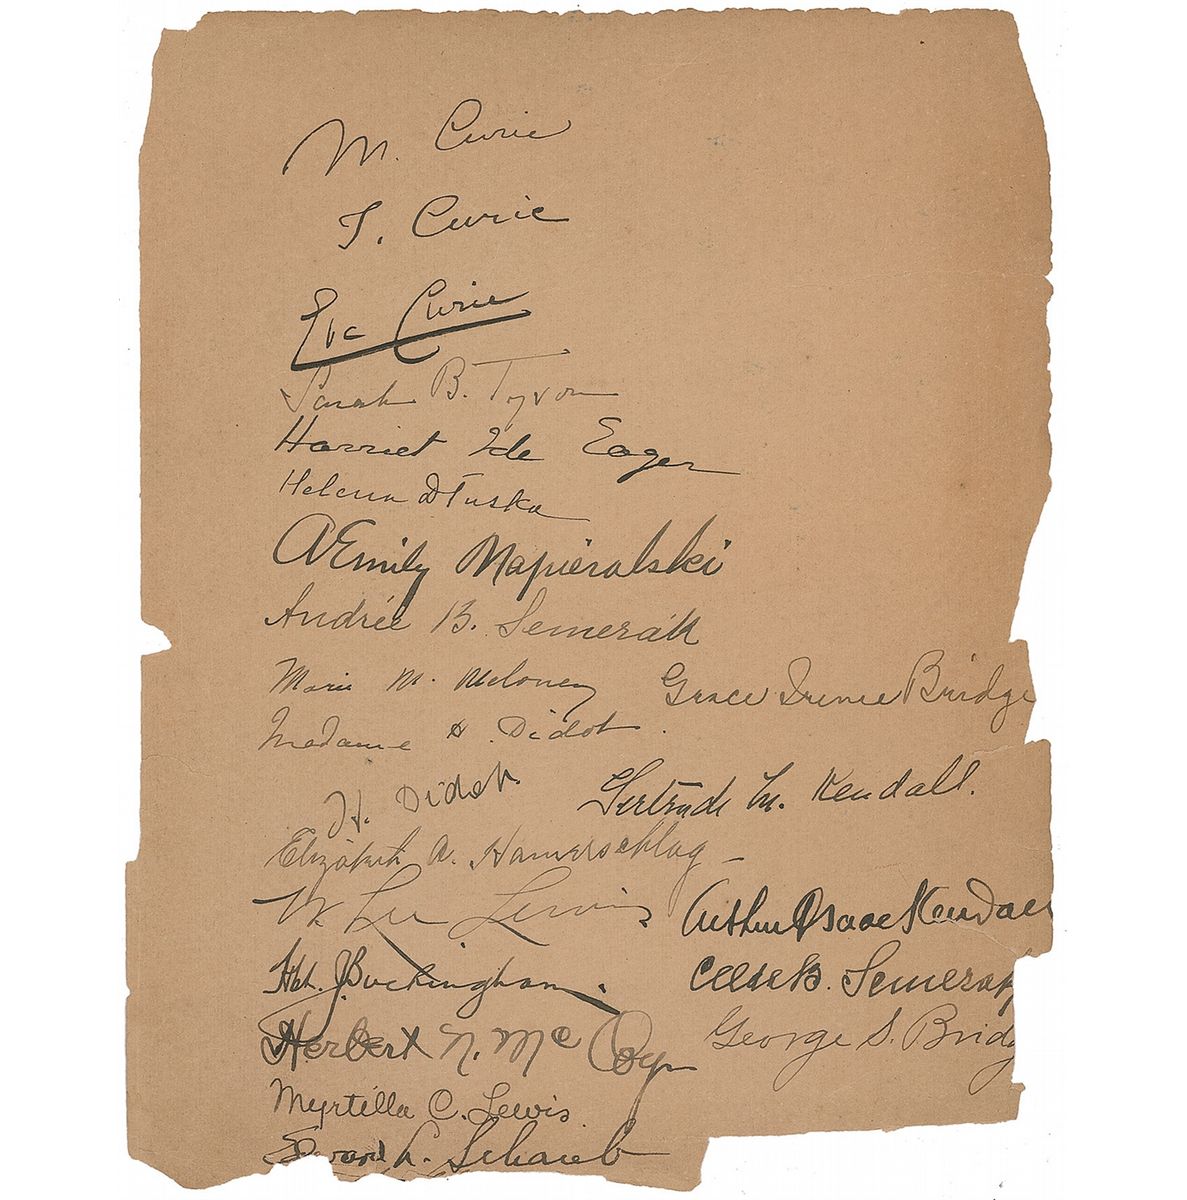 M. Curie
I. Curie
Eve Curie
Sarah B. Tyson
Harriet Ide Eager
Helena Dłuska
A Emily Napieralski
Andrée B. Semerák
Marie M. Meloney
Grace Irene Bridge
Madame H. Didot.
H. Didot.
Gertrude M. Kendall.
Elizabeth A. Hamerschlag
W Lee Lewis
Arthur Isaac Kendall
J. Buckingham.
B. Semerák
Herbert N. McCoy
George S. Bridg
Myrtilla C. Lewis.
L. Schaub